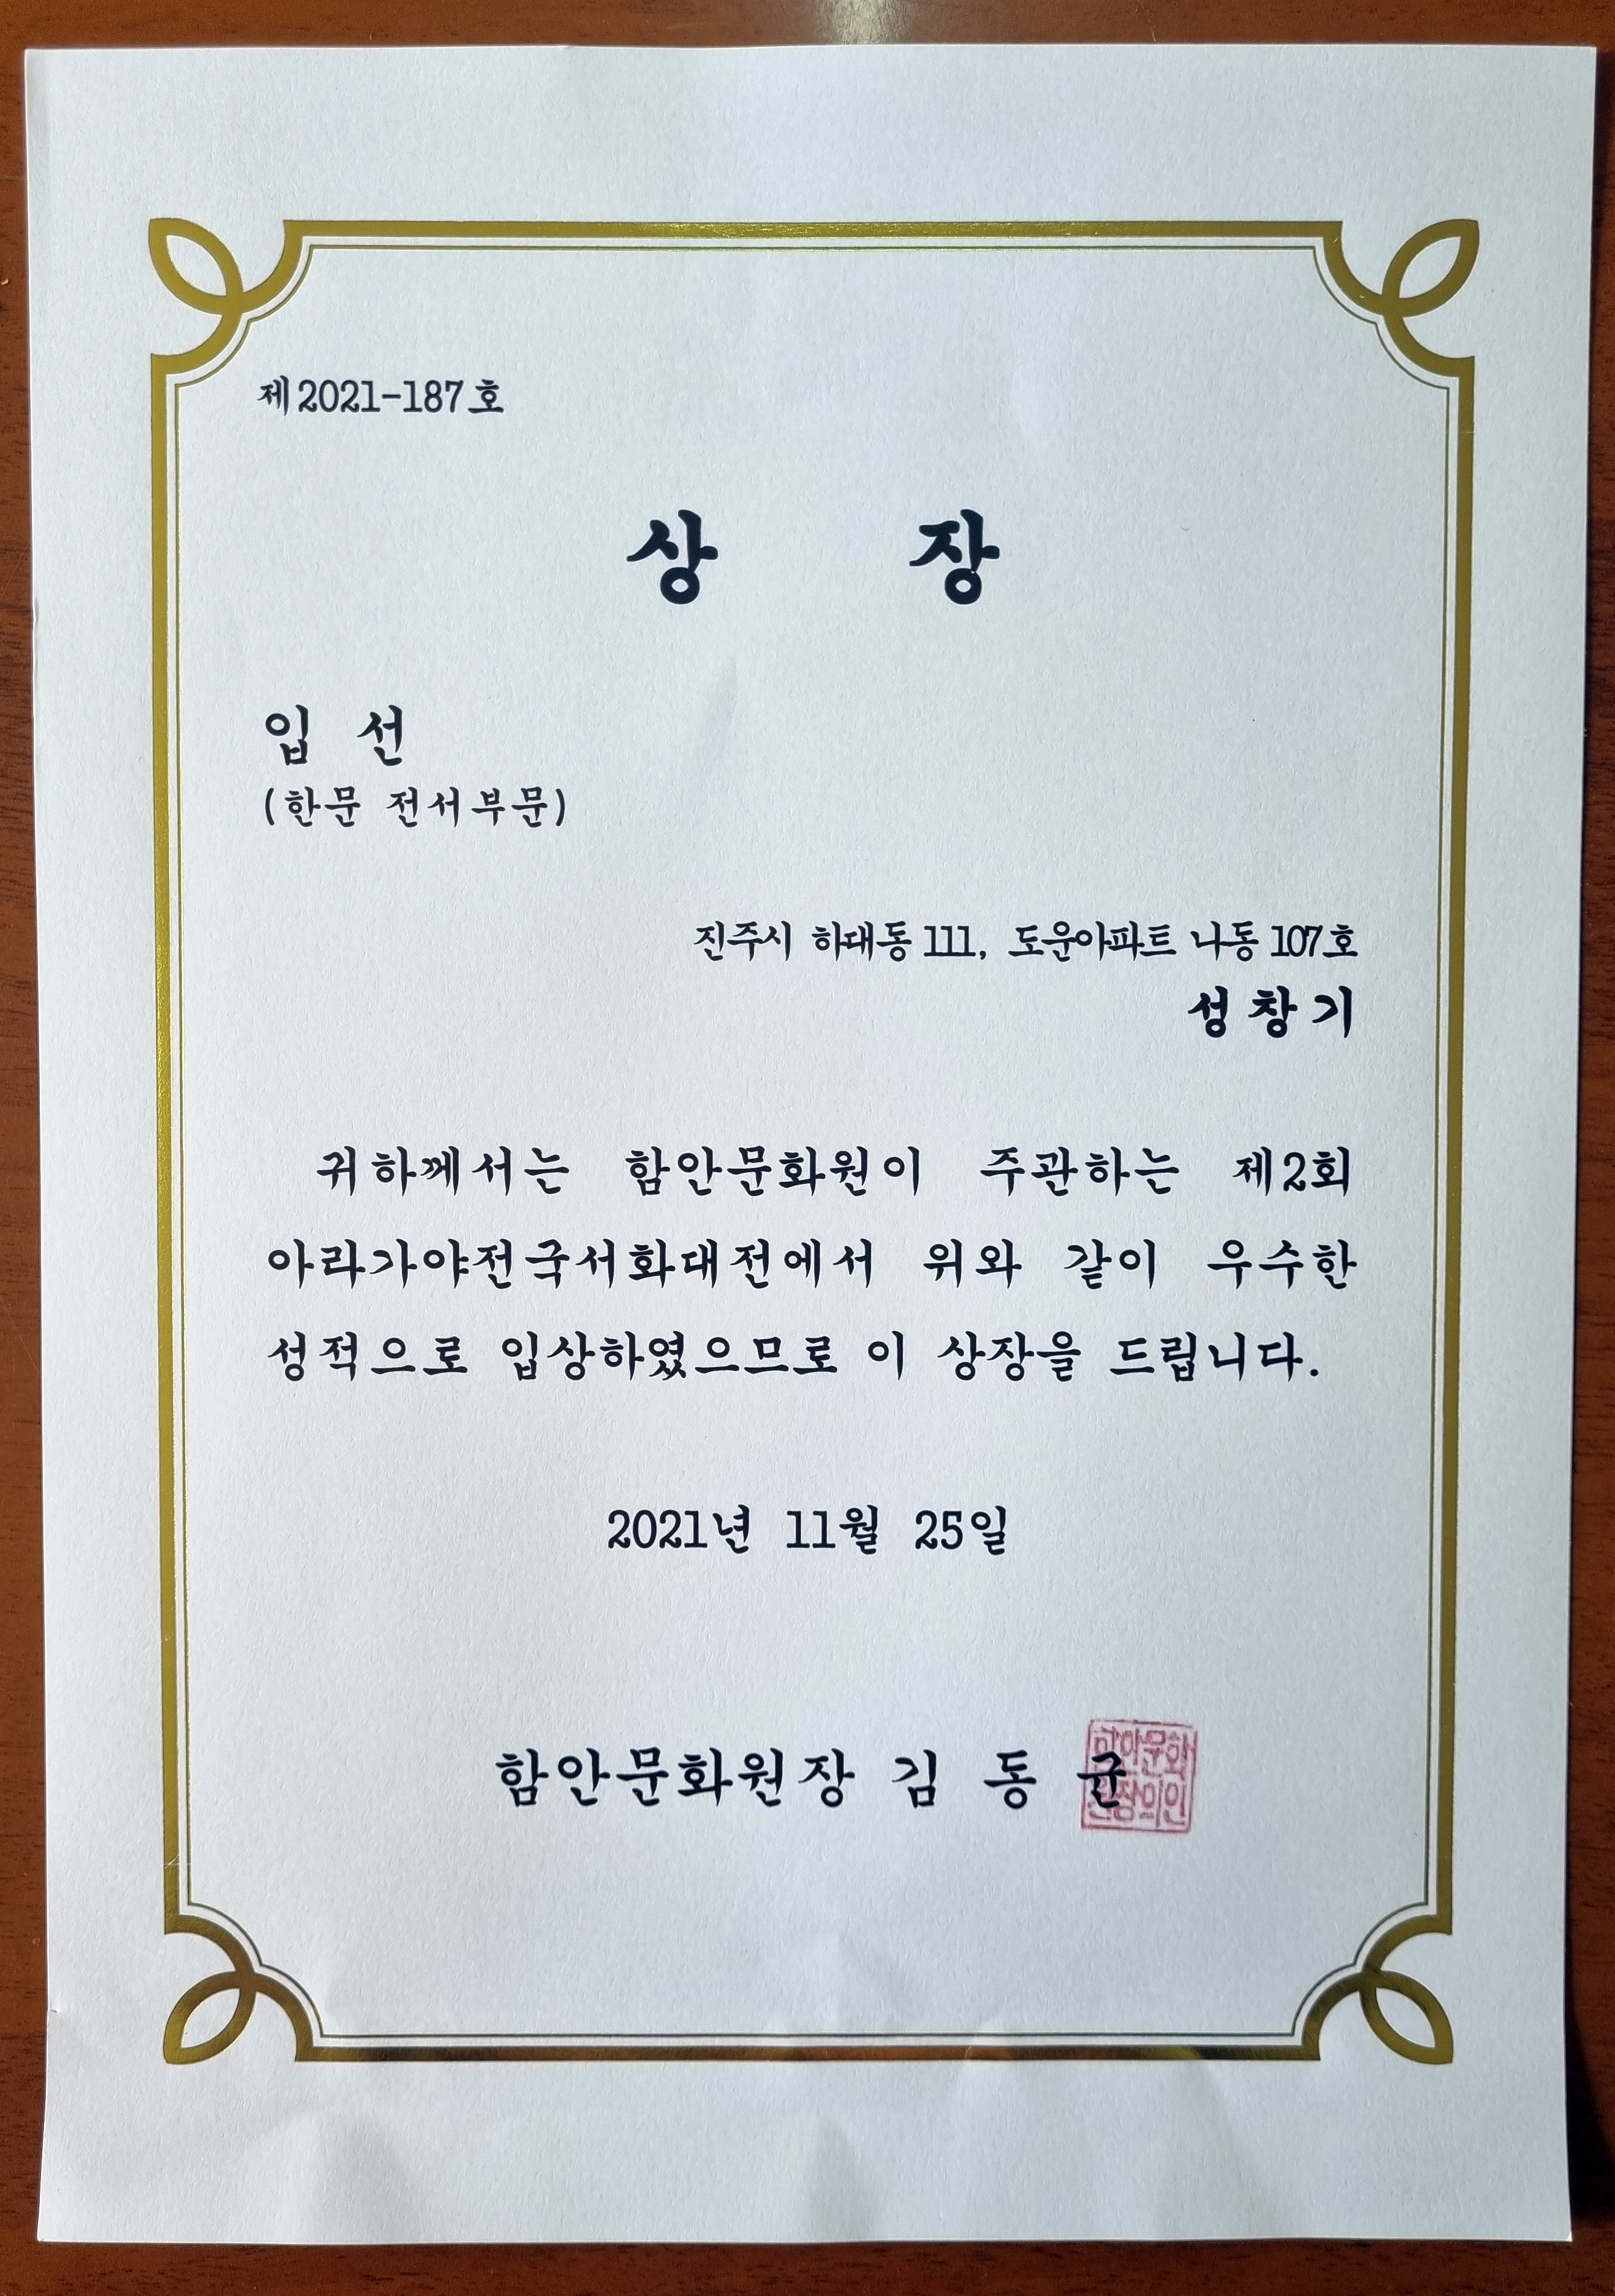 제2021-187호
상 장
입 선
(한문 전서부문)
진주시 하대동 111, 도운아파트 나동 107호
성 창 기
귀하께서는 함안문화원이 주관하는 제2회
아라가야전국서화대전에서 위와 같이 우수한
성적으로 입상하였으므로 이 상장을 드립니다.
2021년 11월 25일
함안문화원장 김 동 균
함안문화
원장의인